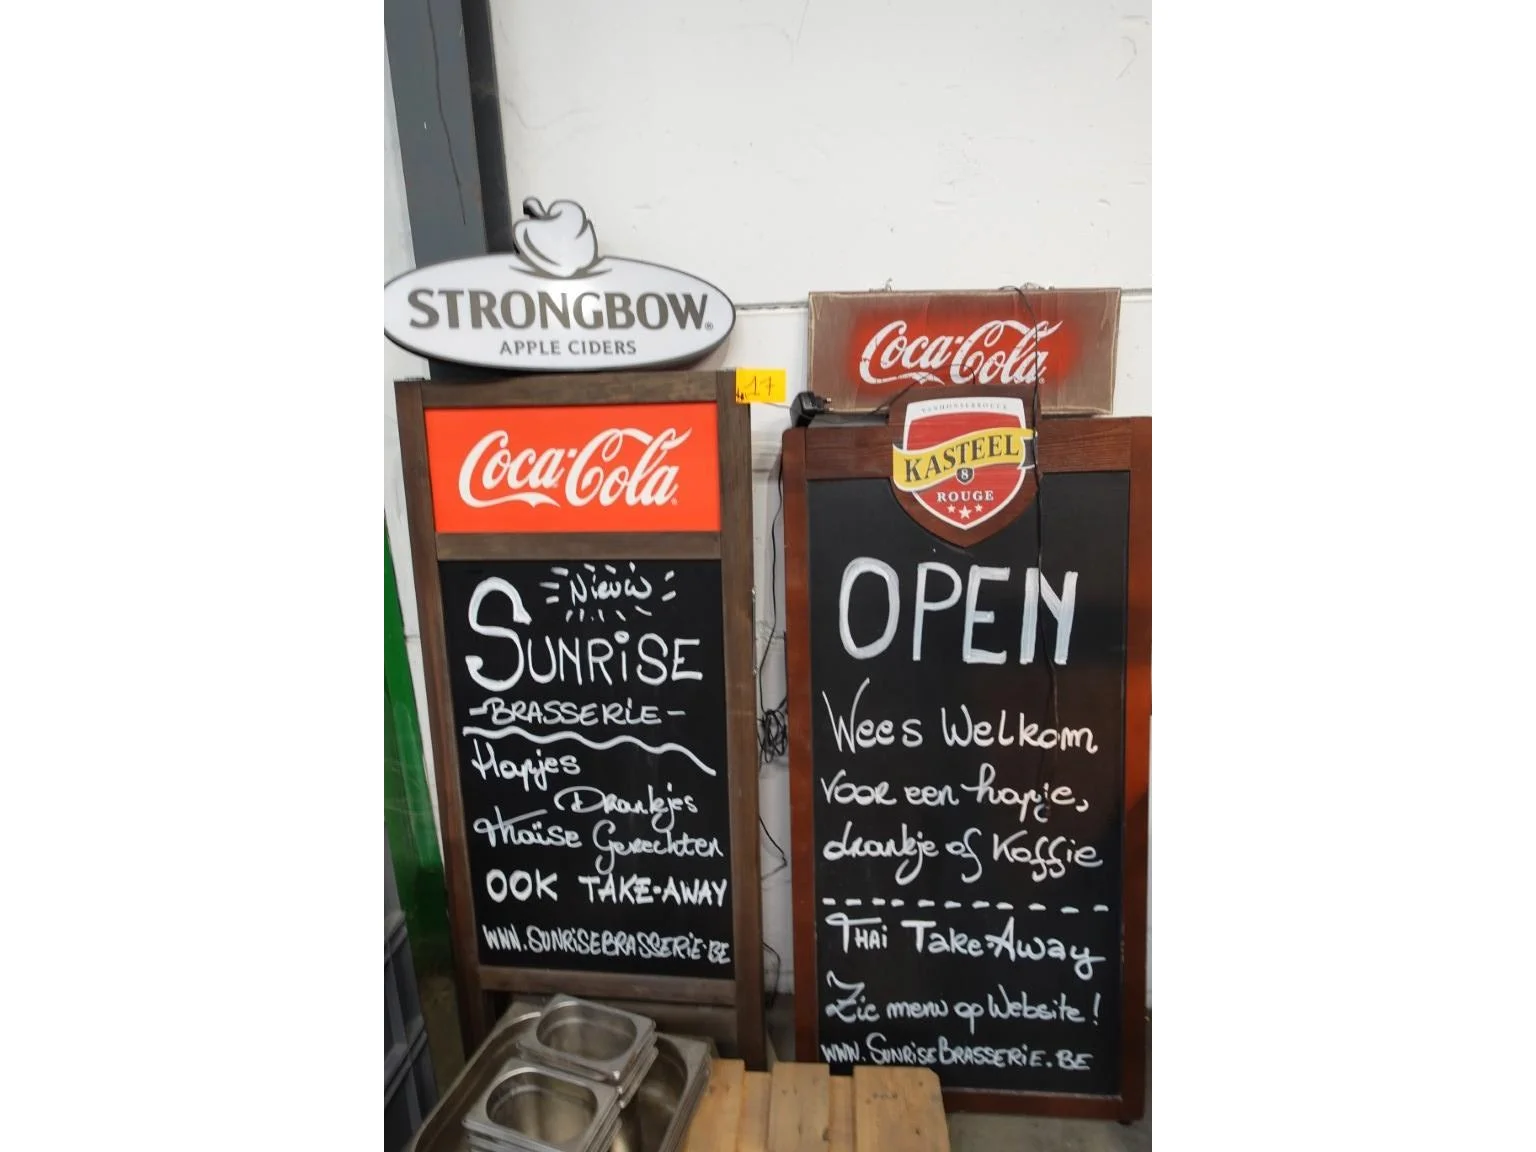 STRONGBOW®
APPLE CIDERS
17
Coca-Cola
Nieuw
SUNRiSE
-BRASSERiE-
Hapjes
Drankjes
Thaïse Gerechten
OOK TAKE-AWAY
WWW.SUNRiSEBRASSERiE.BE
Coca-Cola
VANHONSEBROUCK
KASTEEL
8
ROUGE
OPEN
Wees Welkom
Voor een hapje,
drankje of Koffie
THAi Take-Away
Zie menu op Website!
WWW.SUNRiSEBRASSERiE.BE